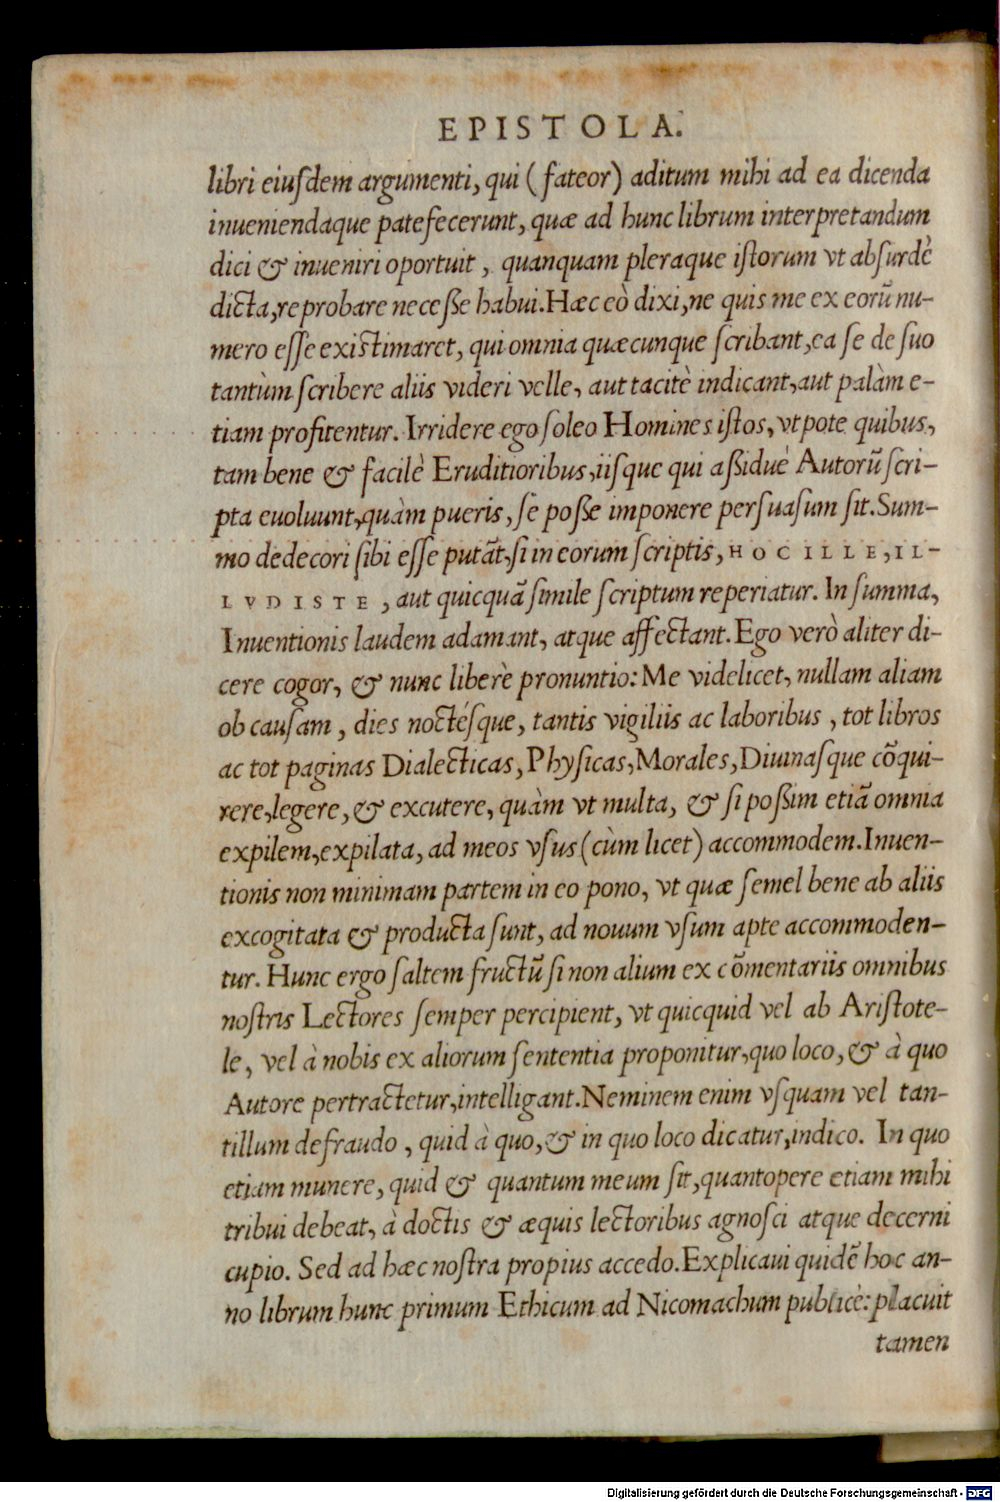 EPISTOLA.
libri eiusdem argumenti, qui (fateor) aditum mihi ad ea dicenda
inueniendaque patefecerunt, quæ ad hunc librum interpretandum
dici & inueniri oportuit, quanquam pleraque istorum vt absurdè
dicta, reprobare necesse habui. Hæc eò dixi, ne quis me ex eorũ nu-
mero esse existimaret, qui omnia quæcunque scribant, ea se de suo
tantùm scribere aliis videri velle, aut tacitè indicant, aut palàm e-
tiam profitentur. Irridere ego soleo Homines istos, vtpote quibus,
tam bene & facilè Eruditioribus, iisque qui assiduè Autorũ scri-
pta euoluunt, quàm pueris, se posse imponere persuasum sit. Sum-
mo dedecori sibi esse putãt, si in eorum scriptis, HOC ILLE, IL-
LVD ISTE, aut quicquã simile scriptum reperiatur. In summa,
Inuentionis laudem adamant, atque affectant. Ego verò aliter di-
cere cogor, & nunc liberè pronuntio: Me videlicet, nullam aliam
ob causam, dies noctésque, tantis vigiliis ac laboribus, tot libros
ac tot paginas Dialecticas, Physicas, Morales, Diuinasque cõqui-
rere, legere, & excutere, quàm vt multa, & si possim etiã omnia
expilem, expilata, ad meos vsus (cùm licet) accommodem. Inuen-
tionis non minimam partem in eo pono, vt quæ semel bene ab aliis
excogitata & producta sunt, ad nouum vsum apte accommoden-
tur. Hunc ergo saltem fructũ si non alium ex cõmentariis omnibus
nostris Lectores semper percipient, vt quicquid vel ab Aristote-
le, vel à nobis ex aliorum sententia proponitur, quo loco, & à quo
Autore pertractetur, intelligant. Neminem enim vsquam vel tan-
tillum defraudo, quid à quo, & in quo loco dicatur, indico. In quo
etiam munere, quid & quantum meum sit, quantopere etiam mihi
tribui debeat, à doctis & æquis lectoribus agnosci atque decerni
cupio. Sed ad hæc nostra propius accedo. Explicaui quidẽ hoc an-
no librum hunc primum Ethicum ad Nicomachum publicè: placuit
tamen
Digitalisierung gefördert durch die Deutsche Forschungsgemeinschaft - DFG